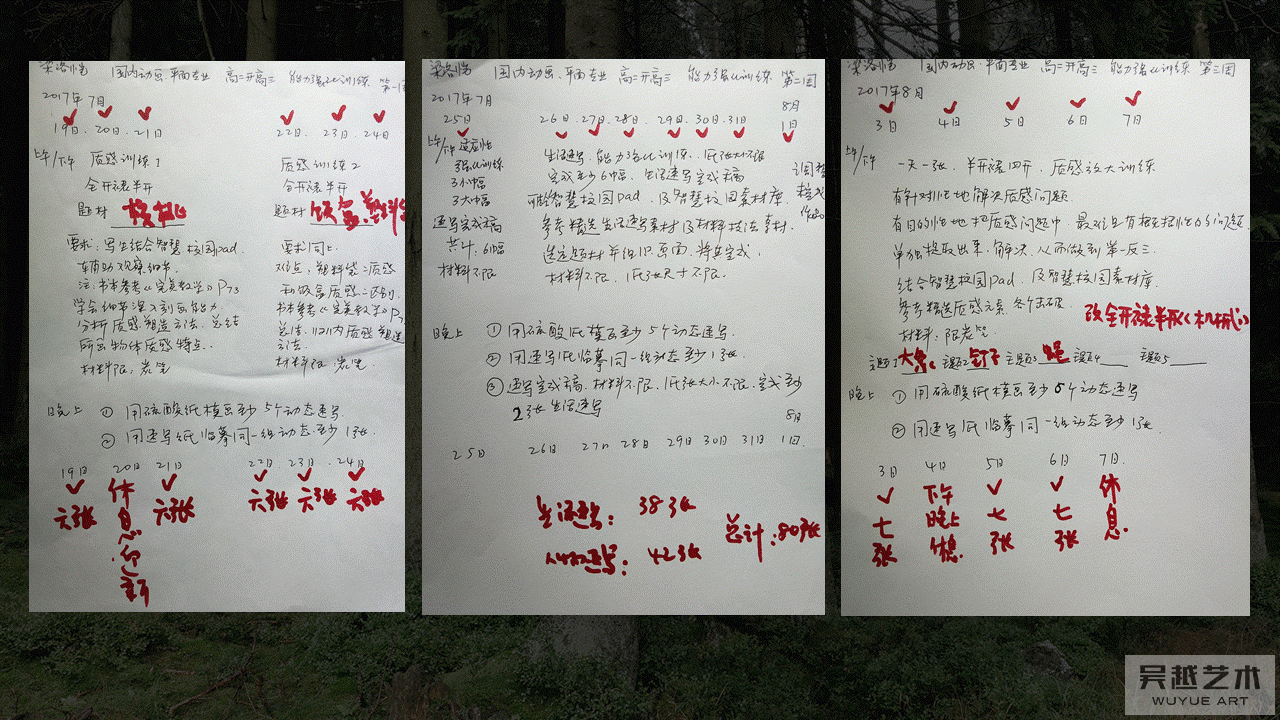 国内动画 平面专业 高二升高三 能力强化训练 第一周
2017年7月
19日. 20日. 21日 22日. 23日. 24日
上午/下午 质感训练1
全开裱半开
题材 核桃
要求: 写生结合智慧校园pad.
辅助观察细节.
注: 书本参考《完美教学》P73
学会细节深入刻画能力
分析质感塑造方法. 总结
所画物体质感特点.
材料限: 炭笔
质感训练2
全开裱半开
题材 饭盒
要求同上
难点: 塑料袋质感
和饭盒质感区别.
书本参考《完美教学》P7
总体: 1周内质感塑造
方法.
材料限: 炭笔
晚上 ① 用硫酸纸模画至少5个动态速写.
② 用速写纸临摹同一组动态至少1张.
19日 20日 21日 22日 23日 24日
六张 休息 六张 六张 六张 六张
国内动画 平面专业 高二升高三 能力强化训练 第二周
2017年7月 8月
25日 26日 27日 28日 29日 30日 31日 1日
上午/下午 适应性
强化训练
3小幅
3大幅
速写完成稿
共计: 6幅
材料不限
生活速写, 能力强化训练, 纸张大小不限
完成至少6幅, 生活速写完成稿
可结合智慧校园pad, 及智慧校园素材库.
参考精选生活速写素材及材料技法素材.
选定题材并组织画面, 将其完成,
材料不限, 纸张尺寸不限.
晚上 ① 用硫酸纸模画至少5个动态速写.
② 用速写纸临摹同一组动态至少1张.
③ 速写完成稿, 材料不限, 纸张大小不限, 完成至少
2张生活速写
8月
25日 26日 27日 28日 29日 30日 31日 1日.
生活速写: 38张
人物速写: 42张
总计: 80张
国内动画 平面专业 高二升高三 能力强化训练 第三周
2017年8月
3日 4日 5日 6日 7日
上午/下午 一天一张, 半开裱四开, 质感放大训练
有针对性地解决质感问题.
有目的性地把质感问题中, 最难且有挑战性的问题,
单独提取出来, 解决, 从而做到举一反三.
结合智慧校园pad, 及智慧校园素材库.
参考精选质感元素, 各个击破.
材料: 限炭笔
改全开裱半开《机械》
主题1 主题2 钉子 主题3 绳 主题4 主题5
晚上 ① 用硫酸纸模画至少5个动态速写
② 用速写纸临摹同一组动态至少1张.
3日 4日 5日 6日 7日.
七张 下午晚上休息 七张 七张 休息
吴越艺术
WUYUE ART